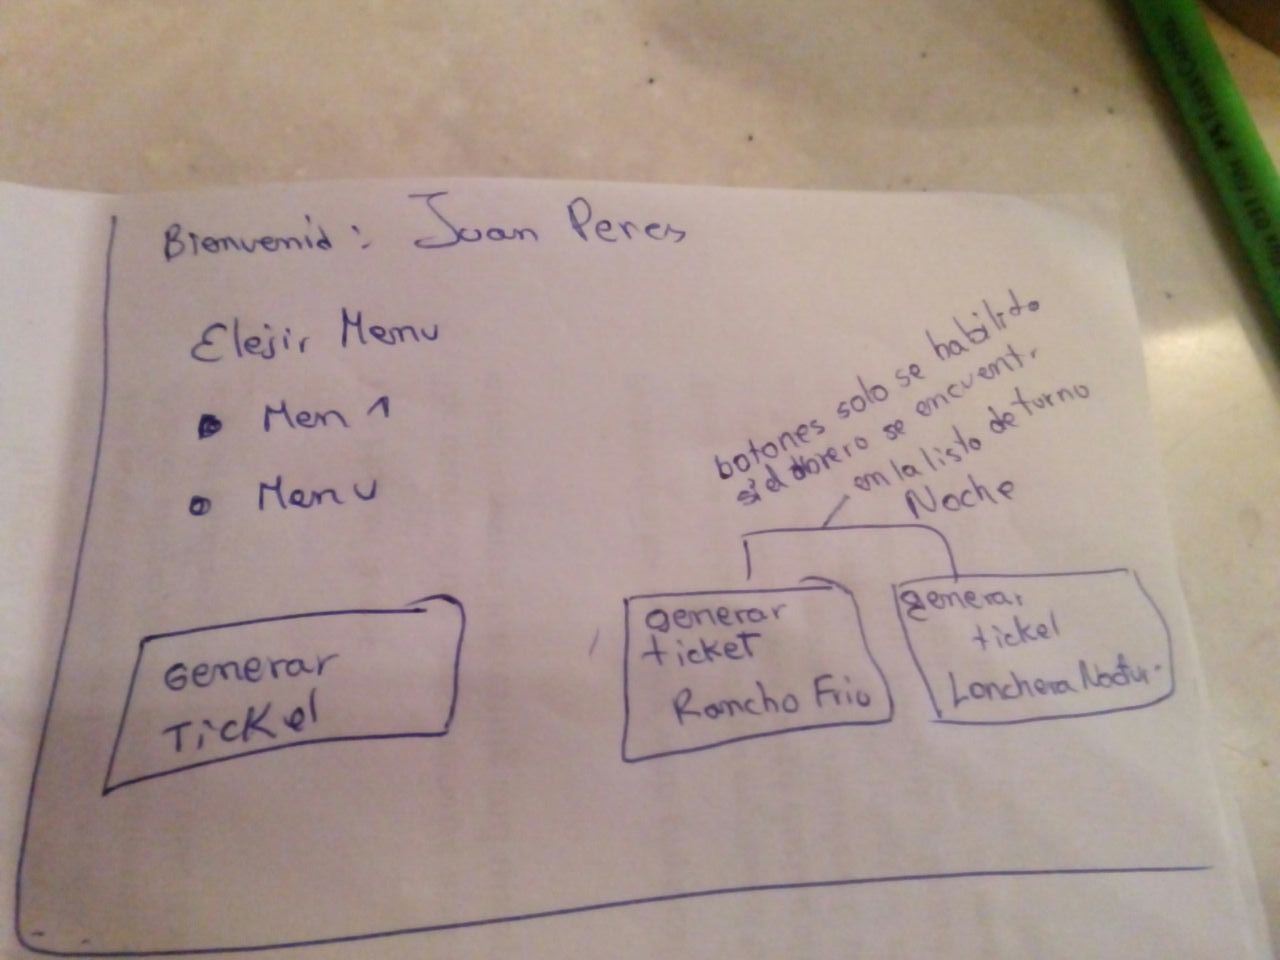 Bienvenid: Juan Peres
Elejir Menu
Men 1
Menu
botones solo se habilito
si el obrero se encuent.
en la listo de turno
Noche
Generar
Ticket
generar
ticket
Rancho Frio
generar
ticket
Lonchera Noctur.